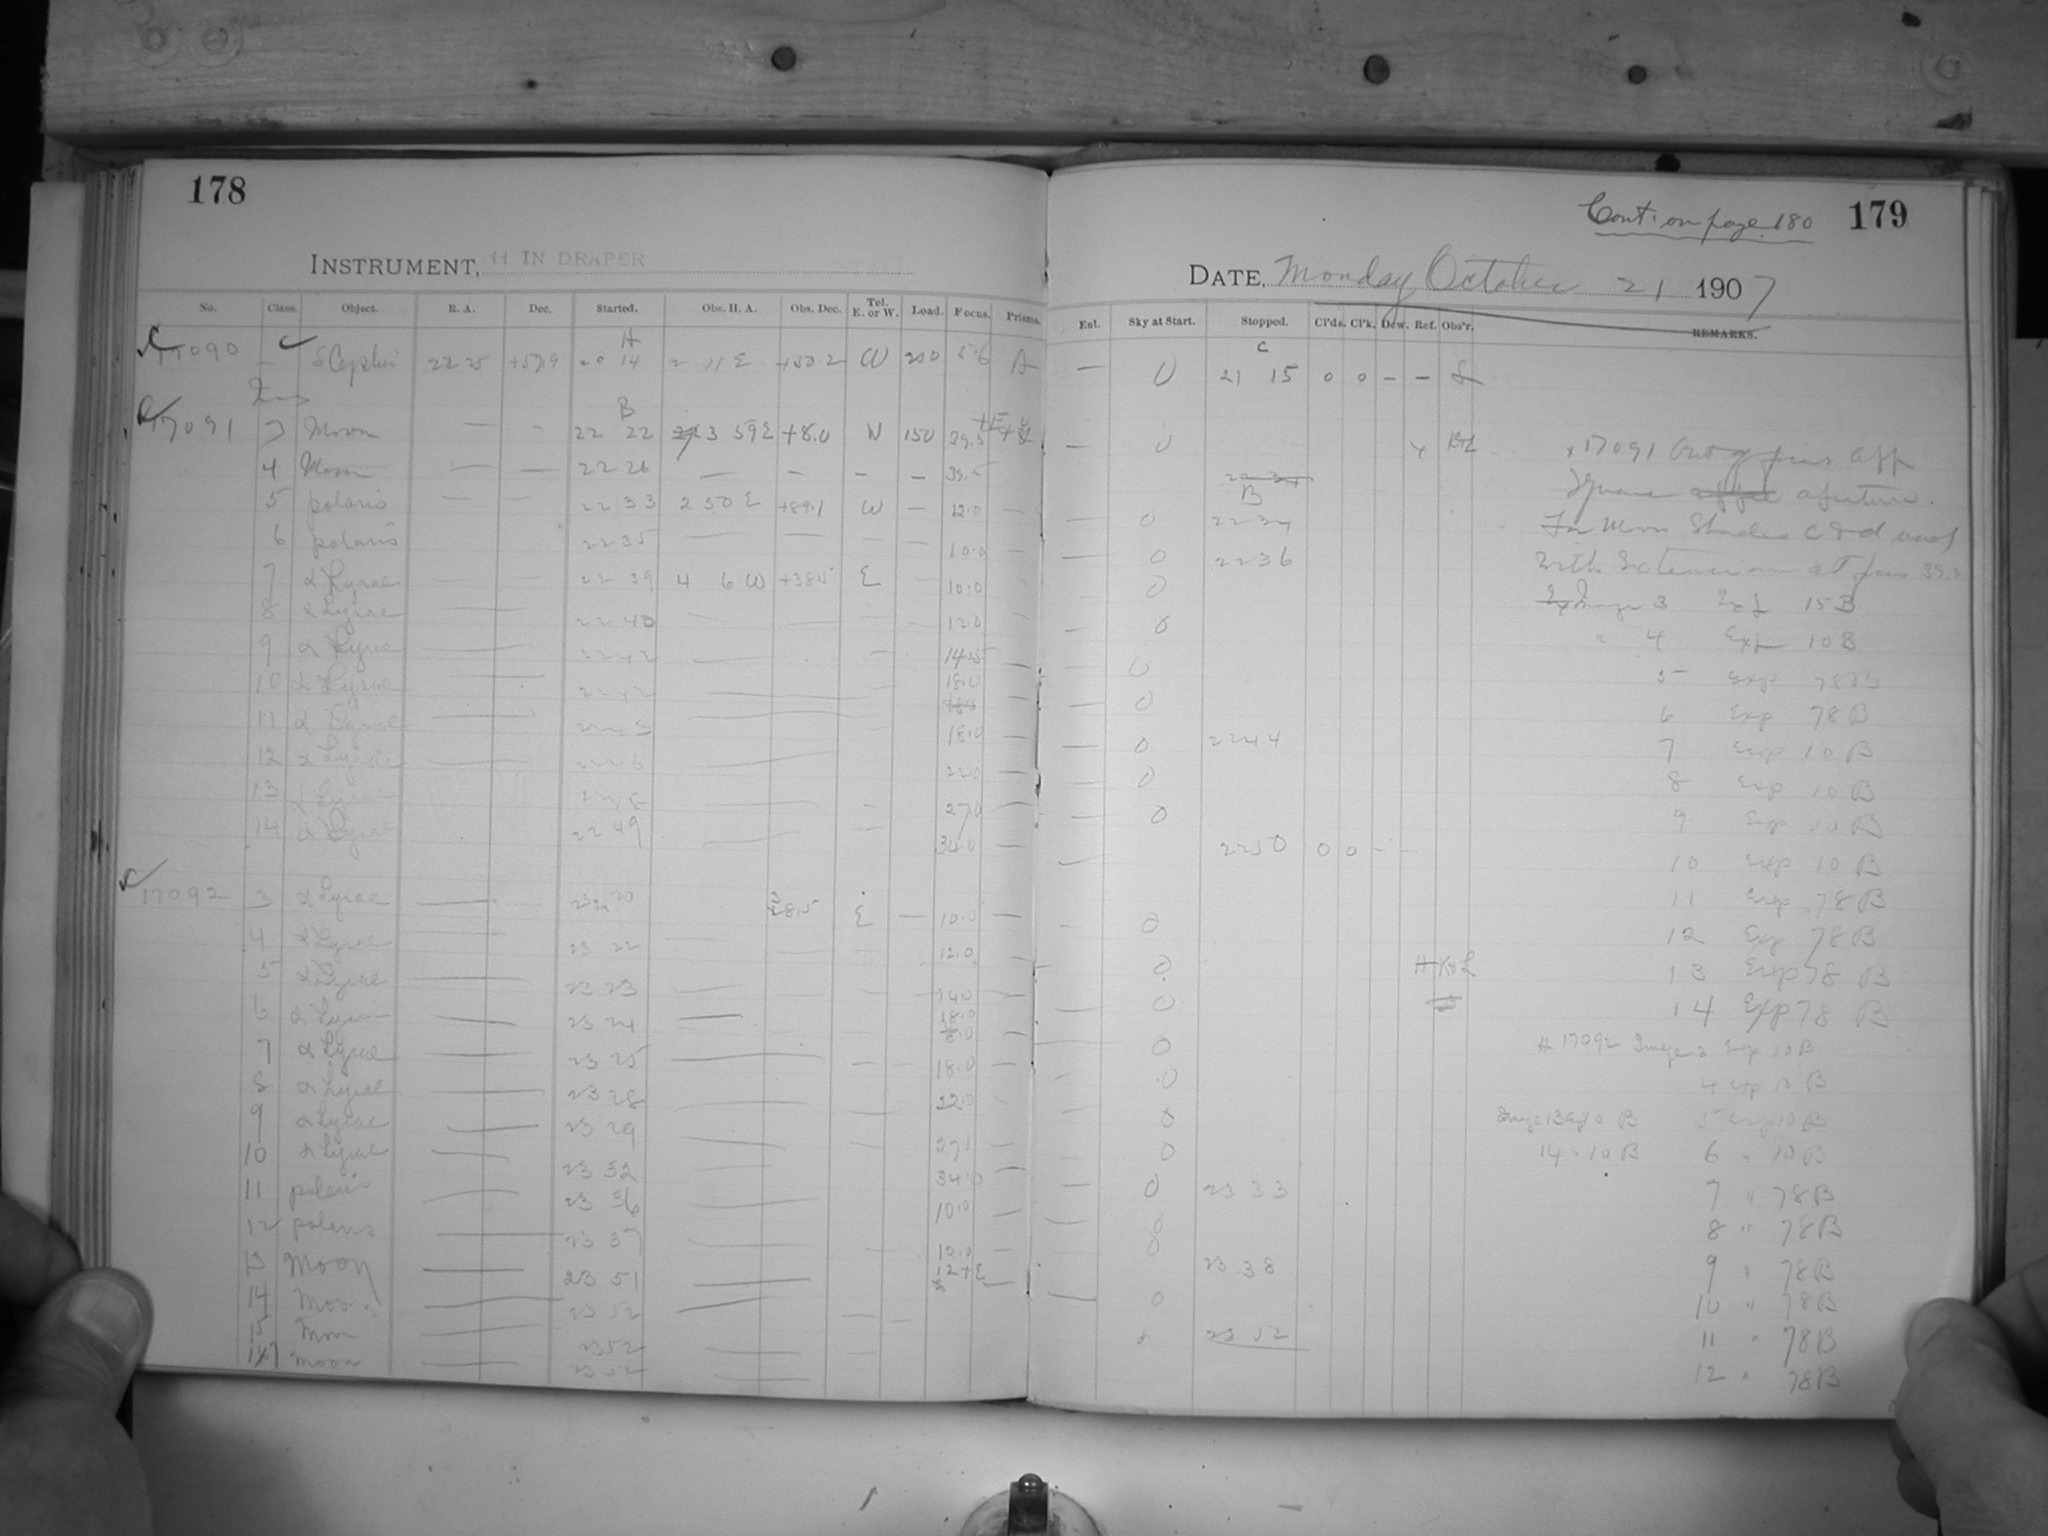 178
INSTRUMENT, 11 IN DRAPER
No. Class. Object. R. A. Dec. Started. Obs. H. A. Obs. Dec. Tel. E. or W. Load. Focus. Prisms.
A
17090 — δ Cephei 22 25 +57.9 20 14 2 11 E W 200 5.6 A
B
17091 3 Moon — - 22 22 3 59 E +8.0 W 150 39.5
4 Moon — — 22 26 — — - — 39.5
5 polaris — — 22 33 2 50 E +89.1 W — 12.0 —
6 polaris 22 35 — — — — 10.0 —
7 α Lyrae — — 22 39 4 6 W +38.5 E 10.0
8 α Lyrae — 22 40 12.0
9 α Lyrae — 22 42 — 14.5 —
10 α Lyrae — 22 42 — 18.0
11 α Lyrae — 22 45 18.0
12 α Lyrae — 22 46 22.0
13 α Lyrae 22 48 27.0
14 α Lyrae 22 49 34.0 —
17092 3 α Lyrae — 23 20 38.5 E — 10.0 —
4 α Lyrae 23 22 12.0
5 α Lyrae — 23 23 14.0
6 α Lyrae — 23 24 — 18.0
7 α Lyrae — 23 25 — 18.0
8 α Lyrae — 23 28 22.0
9 α Lyrae — 23 29 27.1
10 α Lyrae — 23 32 34.0
11 polaris — 23 36 10.0
12 polaris — 23 37 12.0
13 Moon — 23 51 — 12+E
14 Moon — 23 52
15 Moon — 23 52
Moon — 23 52
Cont. on page 180 179
DATE, Monday October 21 1907
Ent. Sky at Start. Stopped. Cl'ds. Cl'k. Dew. Ref. Obs'r. REMARKS.
C
— 0 21 15 0 0 - -
— 0 x 17091 Out of focus App
Square aperture.
B
— 0 22 34 For Moon Shades c & d used
— 0 22 36 With Extension at focus 39.5
0 Image 3 Exp 15B
— 0 " 4 Exp 10B
0 5 Exp 78B
0 6 Exp 78B
— 0 22 44 7 Exp 10B
0 8 Exp 10B
— 0 9 Exp 10B
— 22 50 0 0 - - 10 Exp 10B
11 Exp 78B
0 12 Exp 78B
0 13 Exp 78B
0 14 Exp 78B
0 # 17092 Image 3 Exp 10B
0 4 Exp 10B
0 Image 13 Exp 10B 5 Exp 10B
0 14 " 10B 6 " 10B
— 0 23 33 7 " 78B
0 8 " 78B
0 23 38 9 " 78B
— 0 10 " 78B
23 52 11 " 78B
12 " 78B